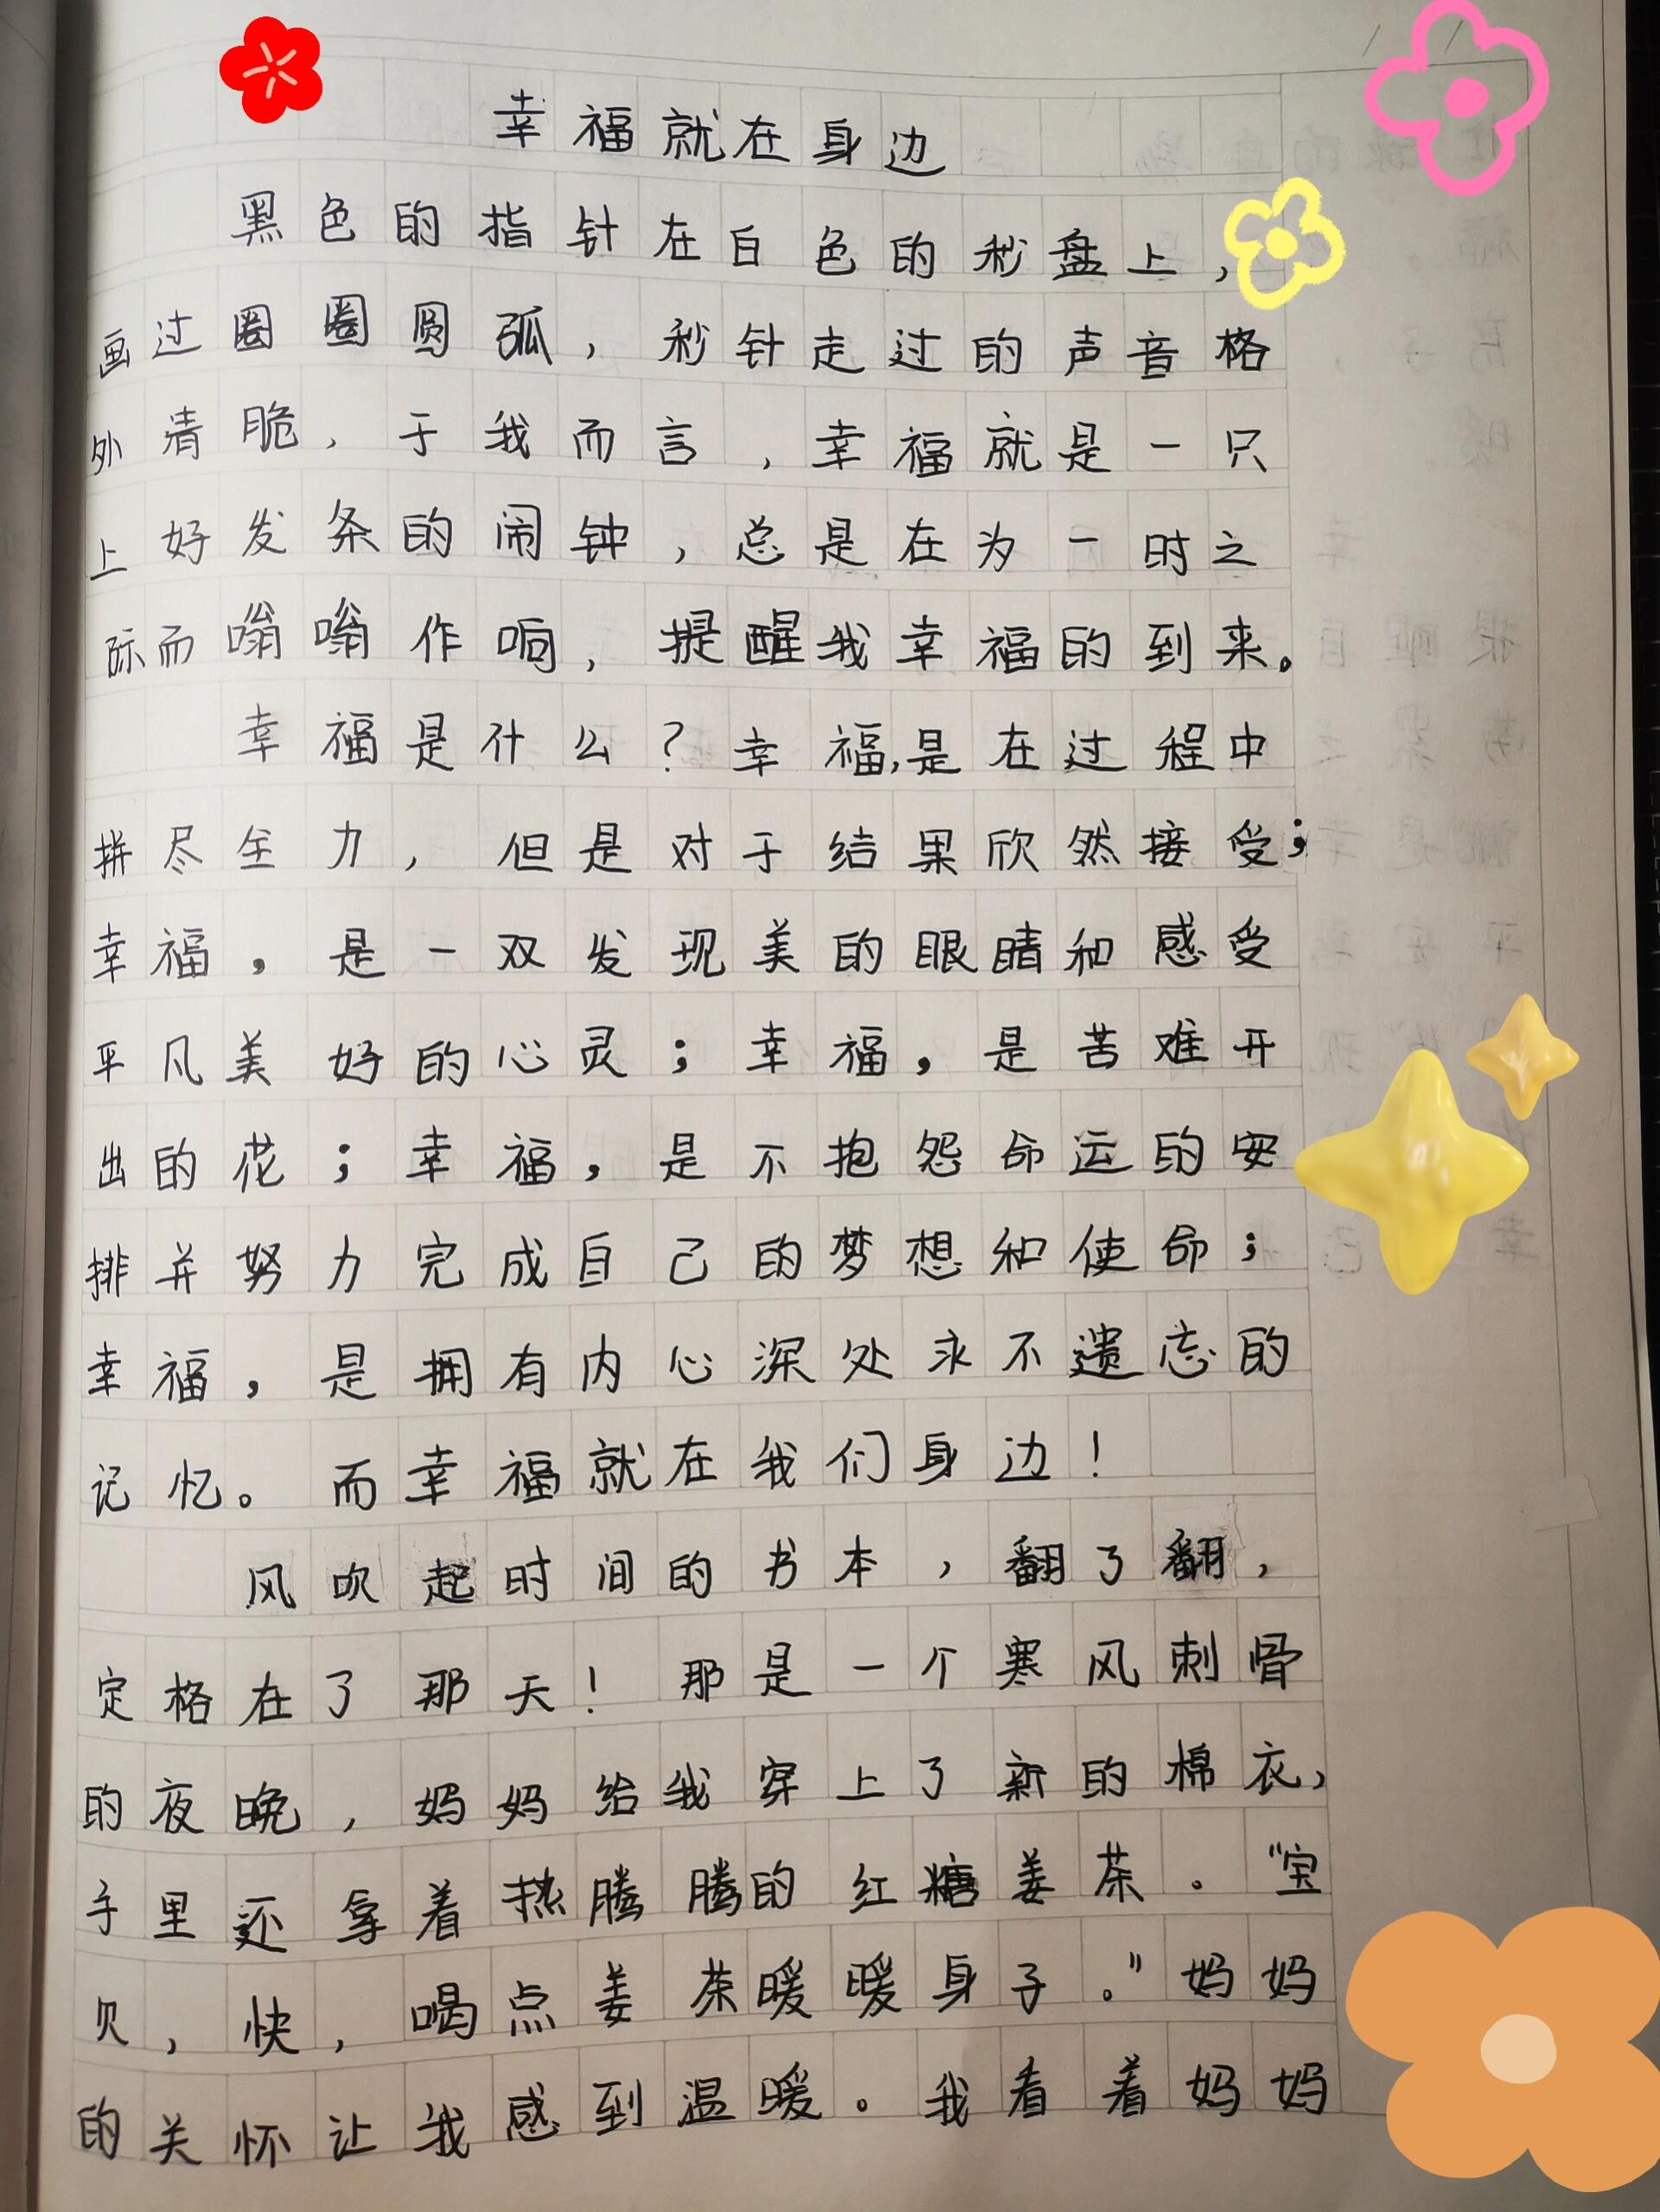 幸福就在身边
黑色的指针在白色的秒盘上，
画过圈圈圆弧，秒针走过的声音格
外清脆，于我而言，幸福就是一只
上好发条的闹钟，总是在为一时之
际而嗡嗡作响，提醒我幸福的到来。
幸福是什么？幸福，是在过程中
拼尽全力，但是对于结果欣然接受；
幸福，是一双发现美的眼睛和感受
平凡美好的心灵；幸福，是苦难开
出的花；幸福，是不抱怨命运的安
排并努力完成自己的梦想和使命；
幸福，是拥有内心深处永不遗忘的
记忆。而幸福就在我们身边！
风吹起时间的书本，翻了翻，
定格在了那天！那是一个寒风刺骨
的夜晚，妈妈给我穿上了新的棉衣，
手里还拿着热腾腾的红糖姜茶。“宝
贝，快，喝点姜茶暖暖身子。”妈妈
的关怀让我感到温暖。我看着妈妈